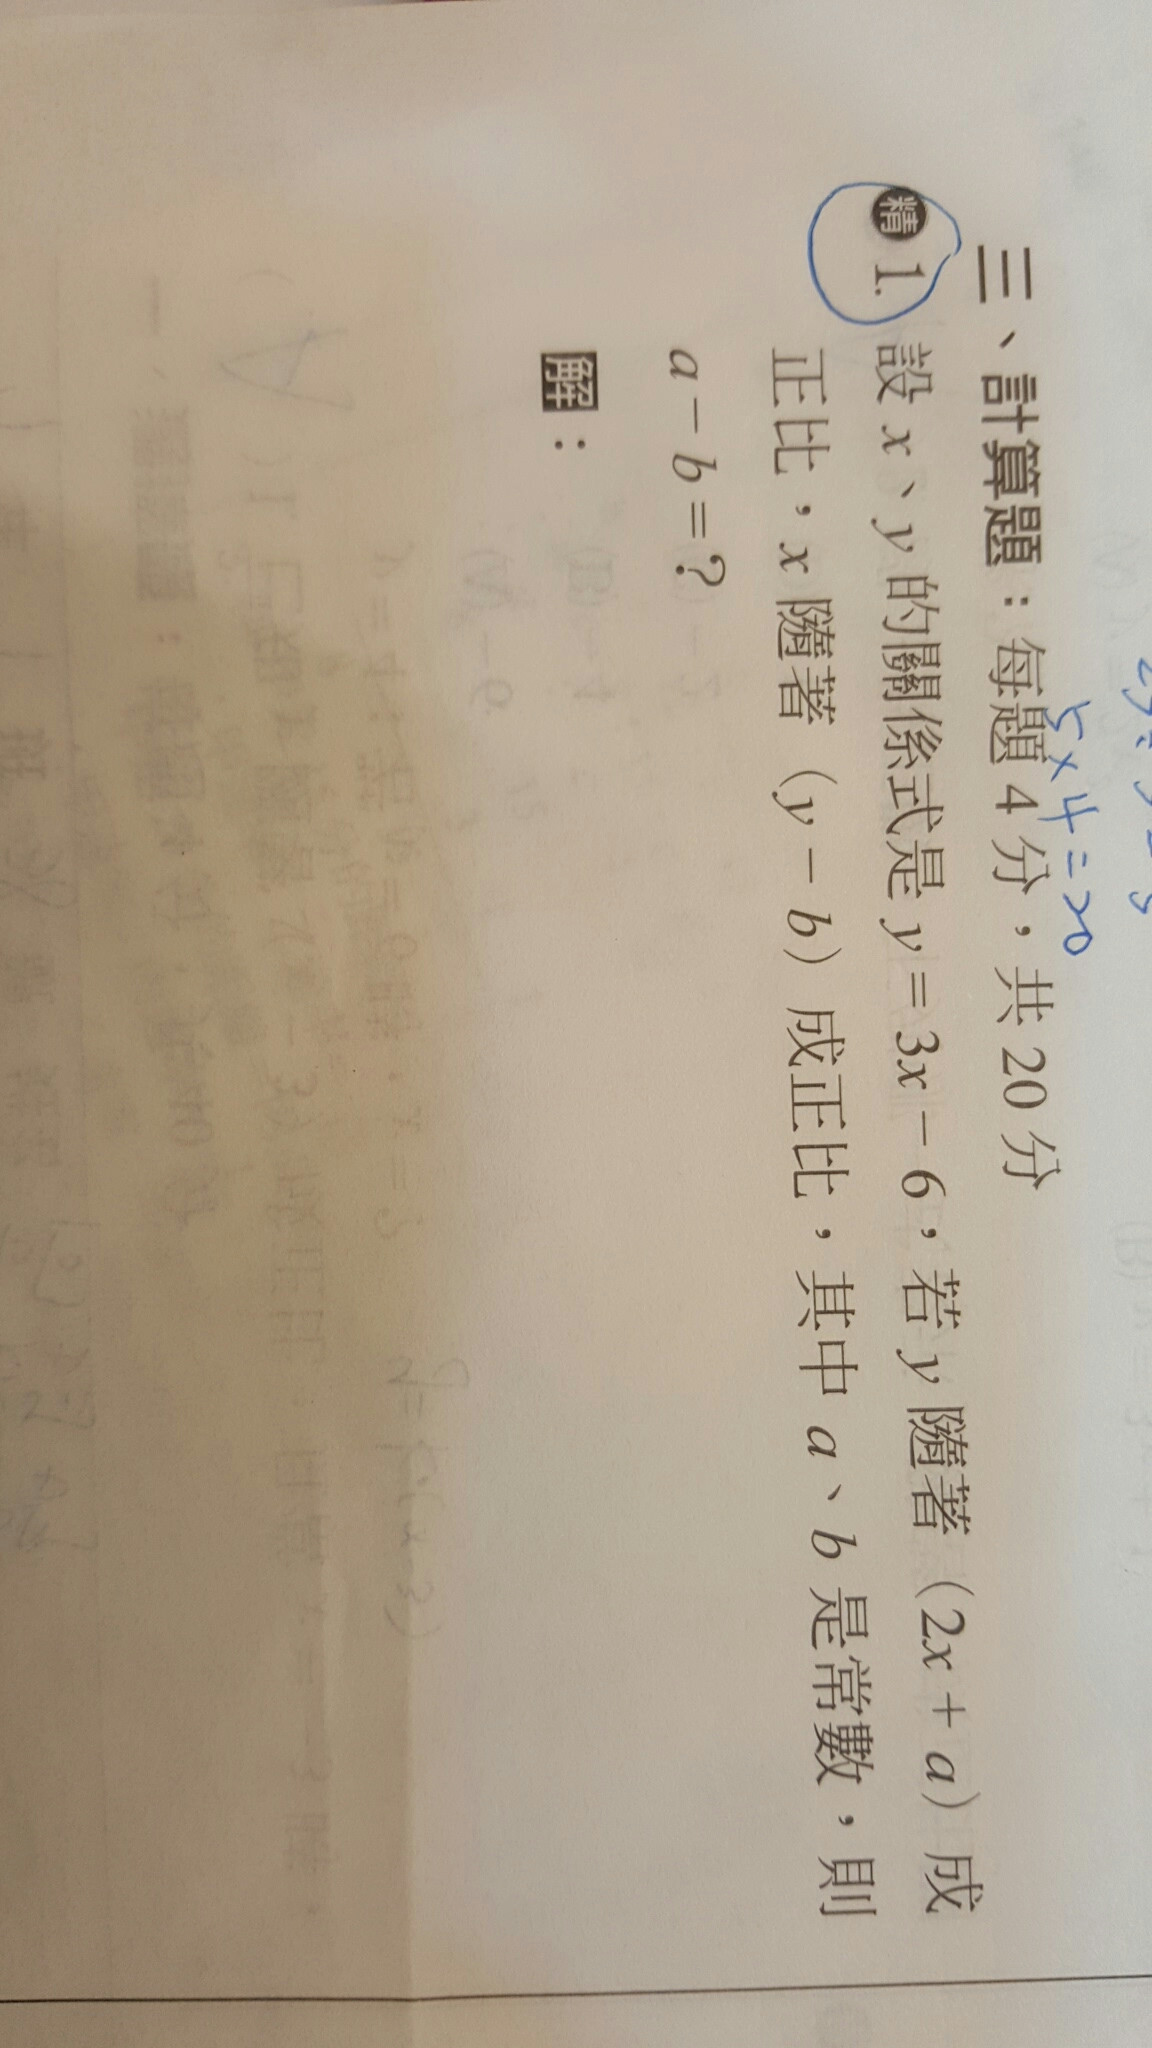 5×4=20
三、計算題：每題 4 分，共 20 分
精 1. 設 x、y 的關係式是 y = 3x − 6，若 y 隨著 (2x + a) 成
正比，x 隨著 (y − b) 成正比，其中 a、b 是常數，則
a − b = ?
解：